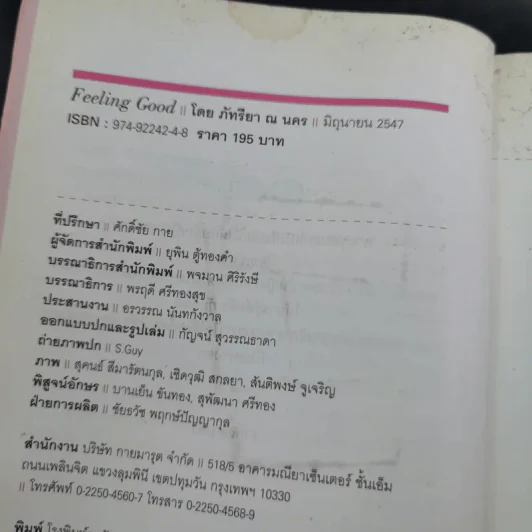 Feeling Good || โดย ภัทรียา ณ นคร || มิถุนายน 2547
ISBN : 974-92242-4-8 ราคา 195 บาท
ที่ปรึกษา || ศักดิ์ชัย กาย
ผู้จัดการสำนักพิมพ์ || ยุพิน ตู้ทองคำ
บรรณาธิการสำนักพิมพ์ || พจมาน ศิริรังษี
บรรณาธิการ || พรฤดี ศรีทองสุข
ประสานงาน || อรวรรณ นันทกังวาล
ออกแบบปกและรูปเล่ม || กัญจน์ สุวรรณธาดา
ถ่ายภาพปก || S.Guy
ภาพ || สุคนธ์ สีมารัตนกุล, เชิดวุฒิ สกลยา, สันติพงษ์ จูเจริญ
พิสูจน์อักษร || บานเย็น ขันทอง, สุพัฒนา ศรีทอง
ฝ่ายการผลิต || ชัยธวัช พฤกษ์ปัญญากุล
สำนักงาน บริษัท กายมารุต จำกัด || 518/5 อาคารมณียาเซ็นเตอร์ ชั้นเอ็ม
ถนนเพลินจิต แขวงลุมพินี เขตปทุมวัน กรุงเทพฯ 10330
|| โทรศัพท์ 0-2250-4560-7 โทรสาร 0-2250-4568-9
พิมพ์